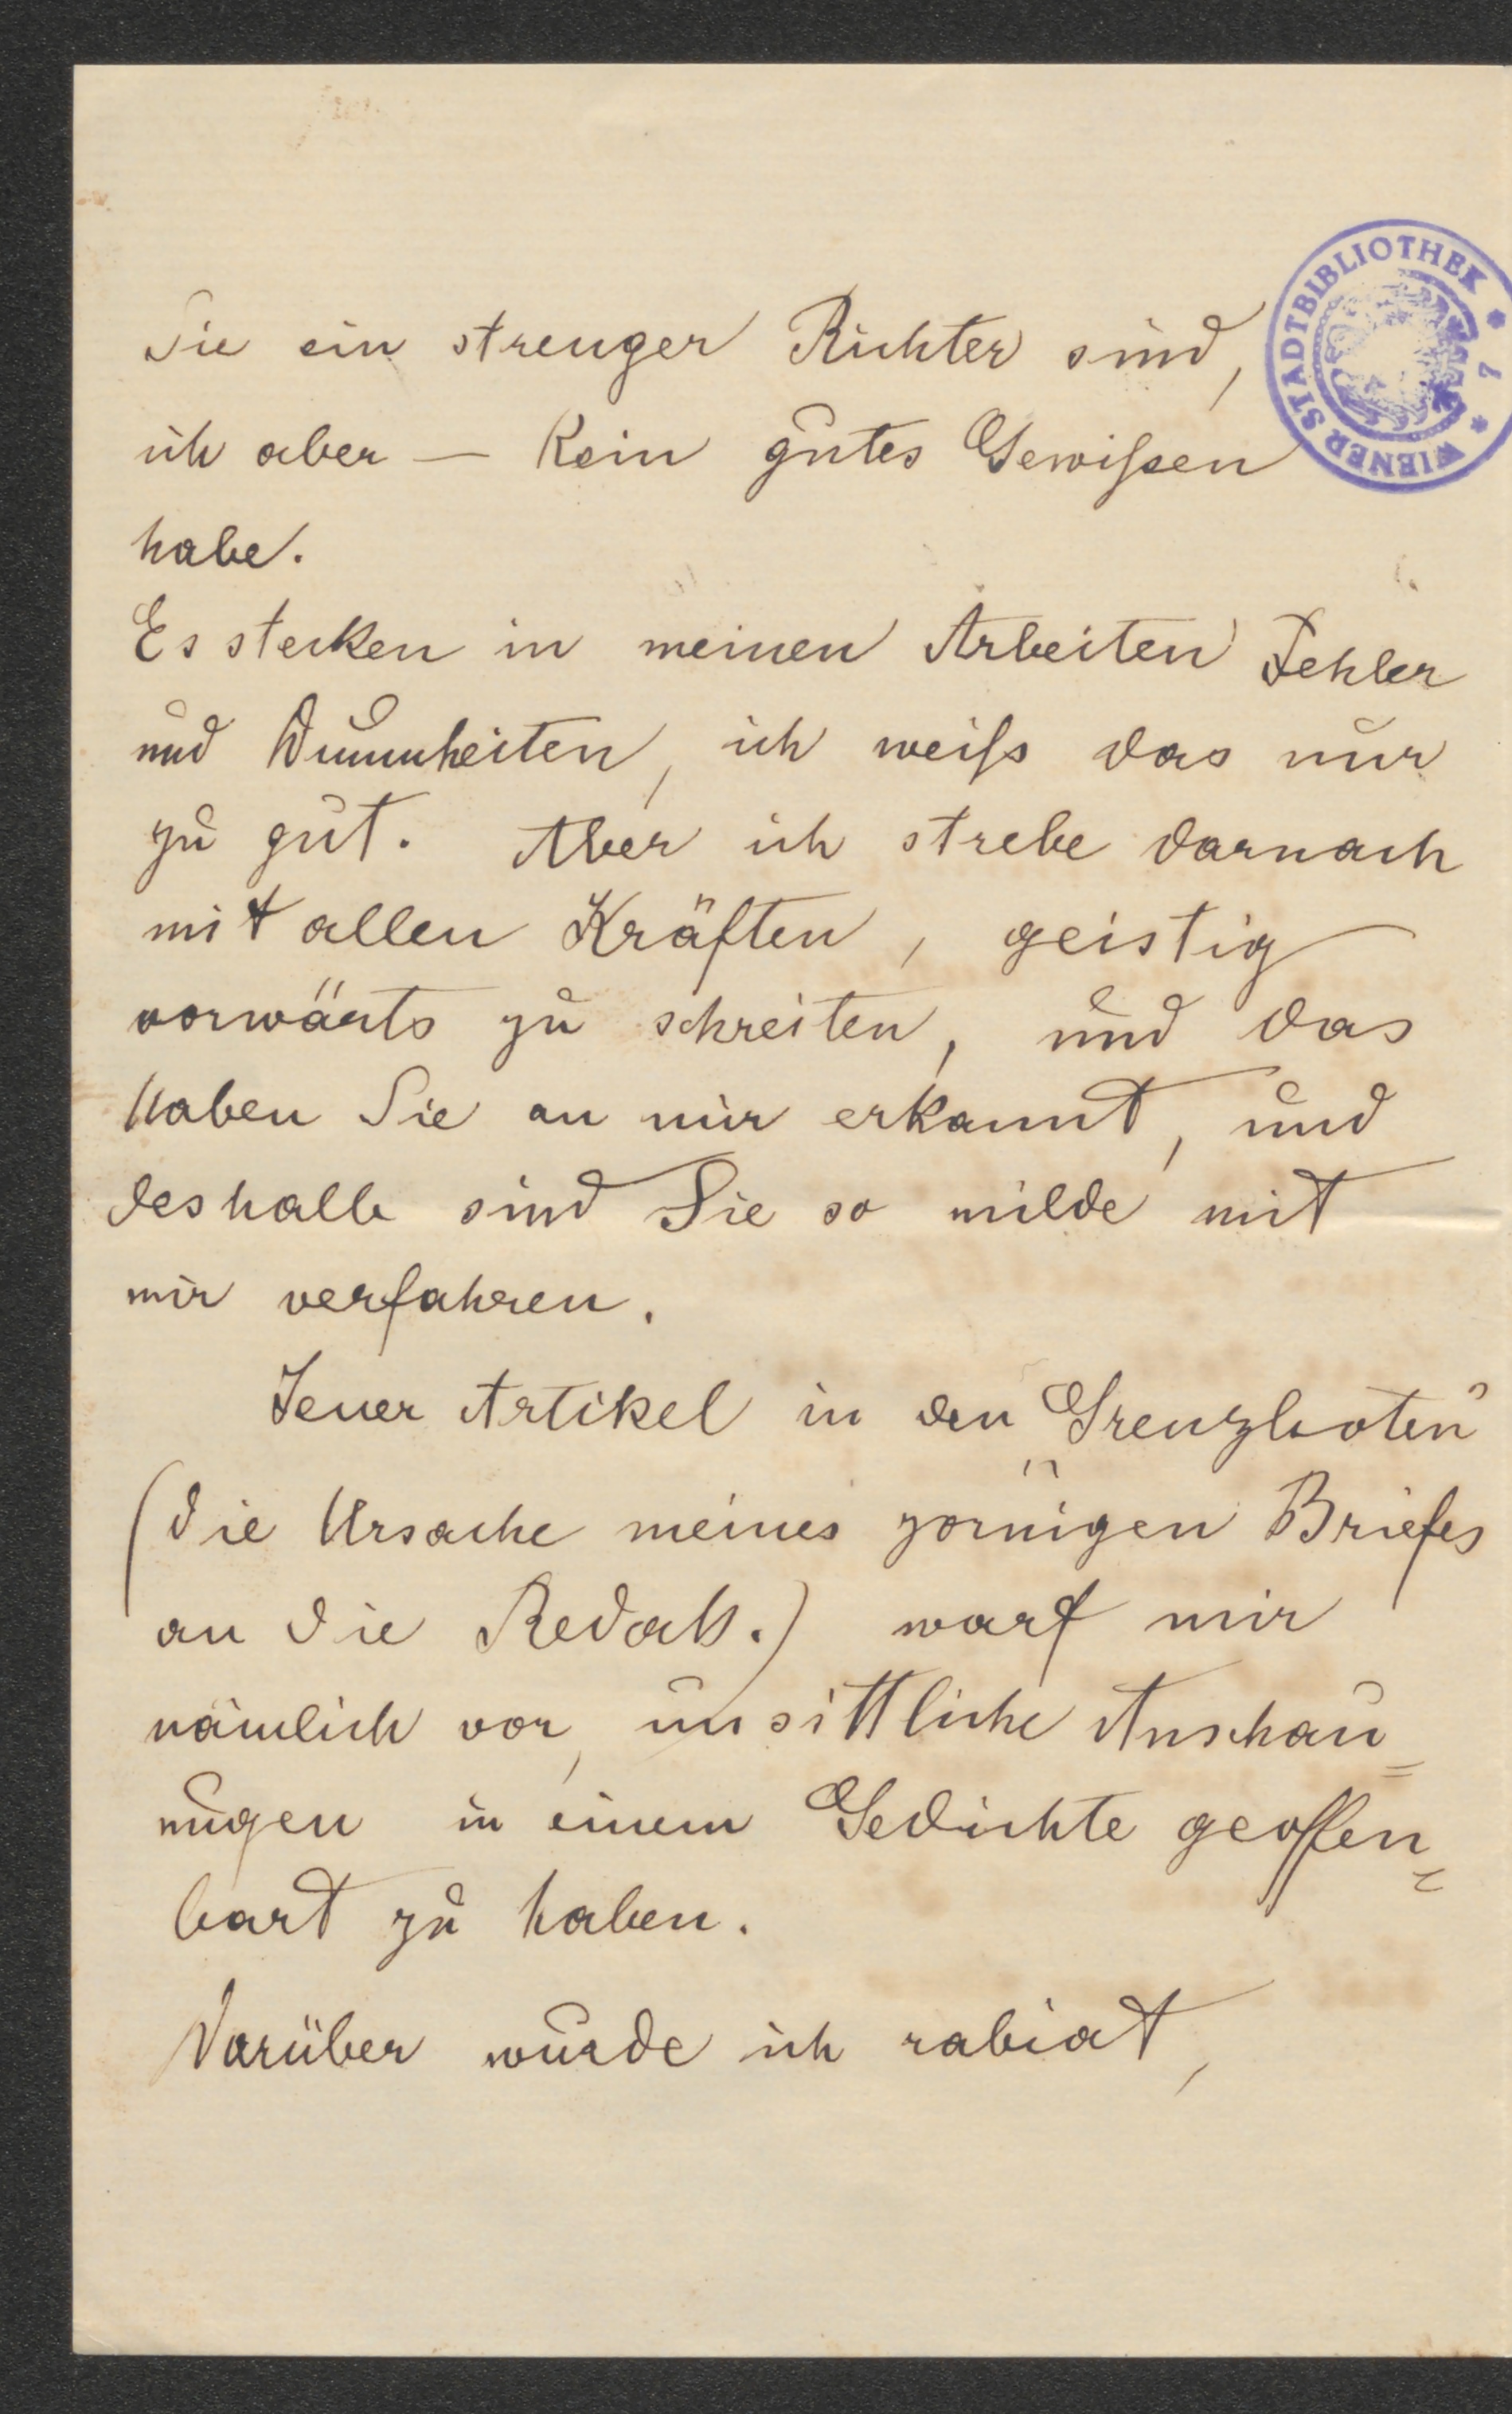 Sie ein strenger Richter sind,
ich aber — kein gutes Gewißen
habe.
Es stecken in meinen Arbeiten Fehler
und Dummheiten, ich weiß das nur
zu gut. Aber ich strebe darnach
mit allen Kräften, geistig
vorwärts zu schreiten, und das
haben Sie an mir erkannt, und
deshalb sind Sie so milde mit
mir verfahren.
Jener Artikel in den „Grenzboten“
(die Ursache meines zornigen Briefes
an die Redakt.) warf mir
nämlich vor, unsittliche Anschau=
ungen in einem Gedichte geoffen=
bart zu haben.
Darüber wurde ich rabiat,
WIENER STADTBIBLIOTHEK * 7 *